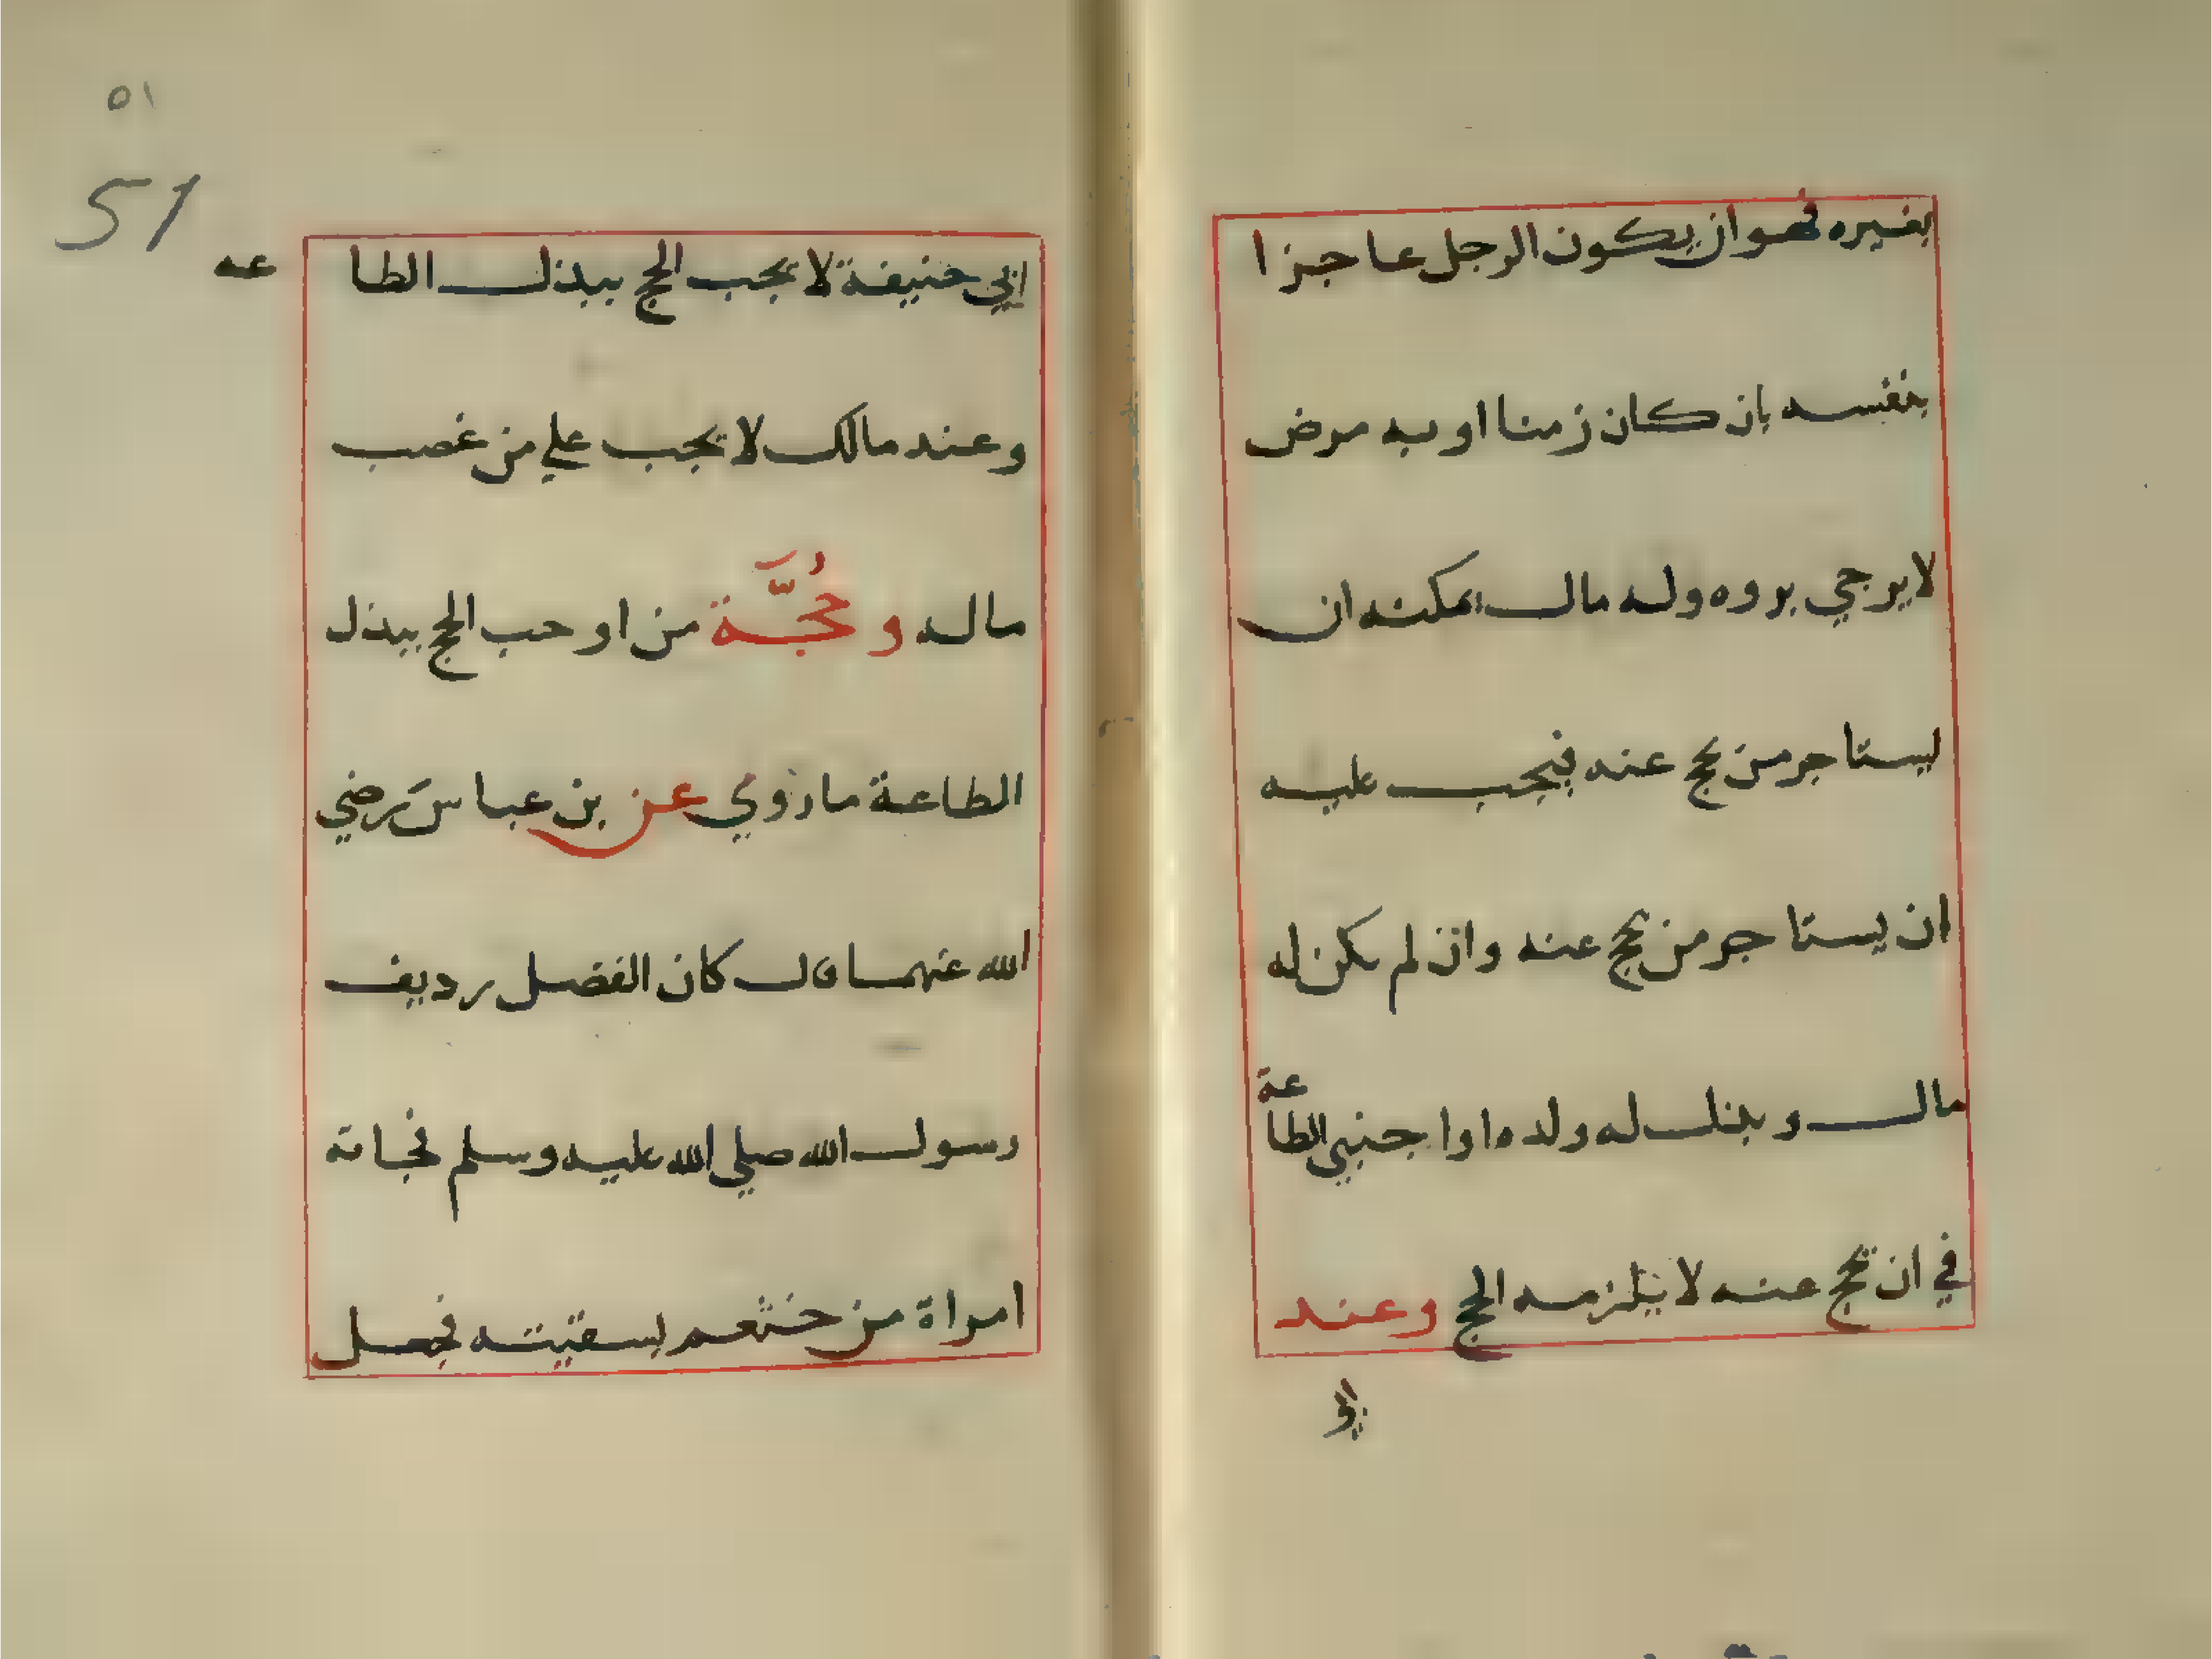 بغيره فهو ان يكون الرجل عاجزا
بنفسه بان كان زمنا او به مرض
لا يرجي بروه وله مال يمكنه ان
يستاجر من يحج عنه فيجب عليه
ان يستاجر من يحج عنه وان لم يكن له
مال وبذل له ولده او اجنبي الطاعة
في ان يحج عنه لا يلزمه الحج وعند
٥١
51
ابي حنيفة لا يجب الحج ببذل الطا عه
وعند مالك لا يجب علي من غصب
ماله و حُجّة من اوحب الحج ببذل
الطاعة ما روي عن بن عباس رضي
الله عنهما قال كان الفضل رديف
رسول الله صلي الله عليه وسلم فجاته
امراة من خثعم يستفتيه فجعل